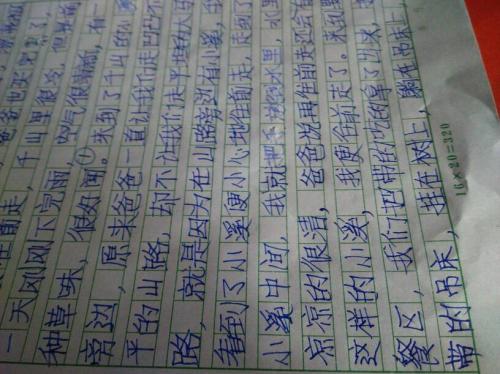 往前走，千山里很冷，但
一天刚刚下完雨，空气很清新，有一
种草味，很好闻。①来到了千山的小溪
旁边，原来爸爸一直让我们走凹凸不
平的山路，却不让我们走平坦的大马
路，就是因为在山路旁边有小溪，我
看到了小溪便小心地往前走，走到了
小溪中间，我就把手放到水里，水里
凉凉的很清，爸爸说再往前走还会有
这样的小溪，我便往前走了。来到
餐区，我们把带的吃的拿了出来，
带的吊床，挂在树上，躺在吊床上，
16×20=320